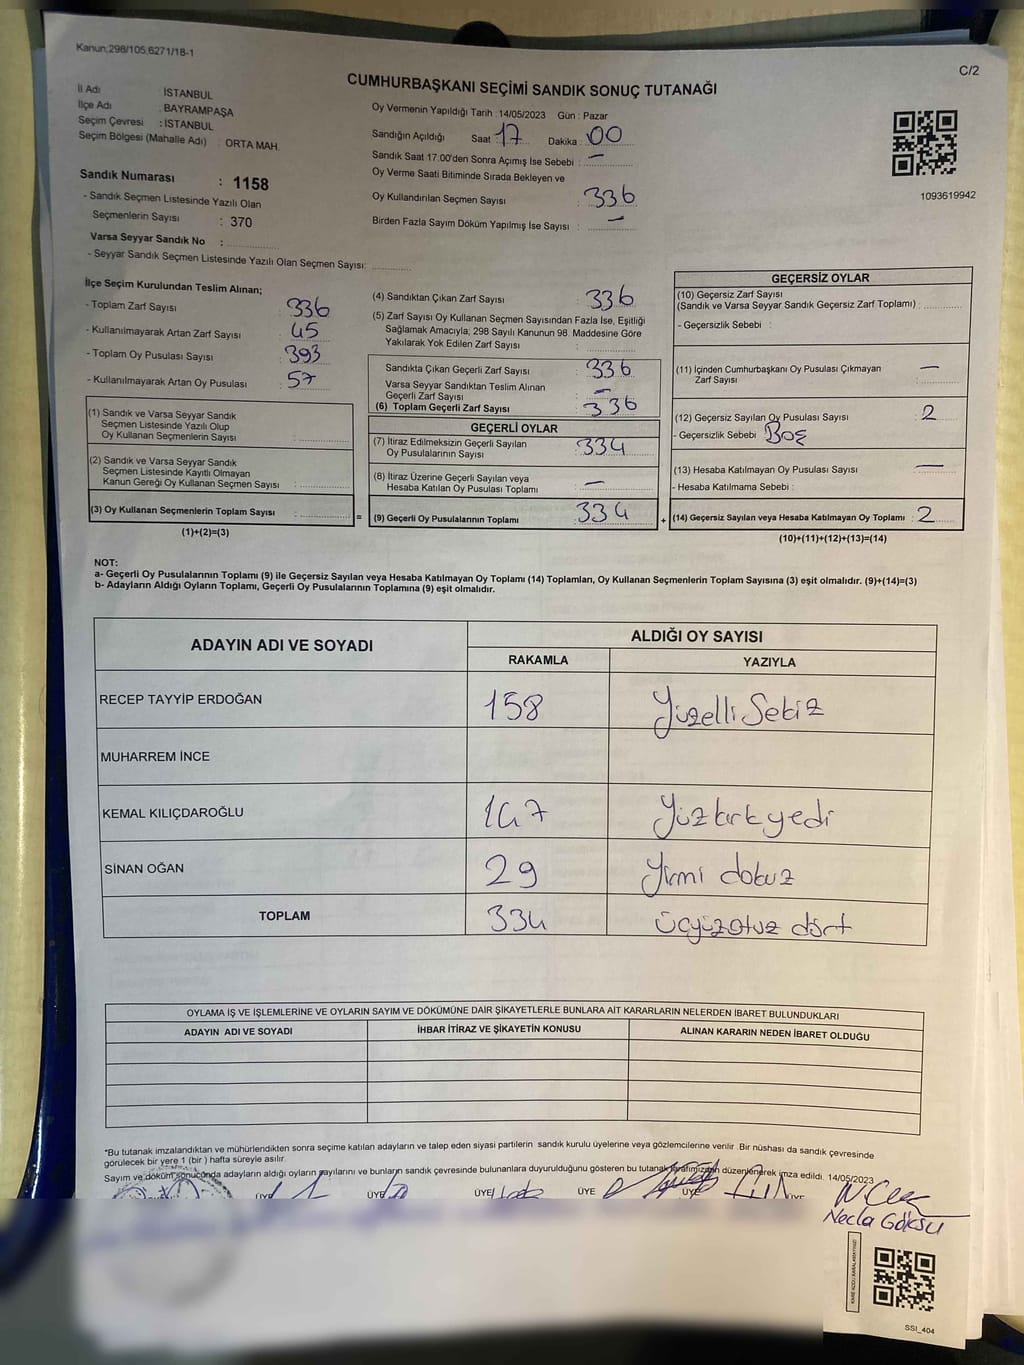 Kanun;298/105,6271/18-1
C/2
CUMHURBAŞKANI SEÇİMİ SANDIK SONUÇ TUTANAĞI
İl Adı : İSTANBUL
İlçe Adı : BAYRAMPAŞA
Seçim Çevresi : İSTANBUL
Seçim Bölgesi (Mahalle Adı) : ORTA MAH.
Sandık Numarası : 1158
- Sandık Seçmen Listesinde Yazılı Olan
Seçmenlerin Sayısı : 370
Varsa Seyyar Sandık No :
- Seyyar Sandık Seçmen Listesinde Yazılı Olan Seçmen Sayısı:
Oy Vermenin Yapıldığı Tarih : 14/05/2023 Gün : Pazar
Sandığın Açıldığı Saat : 17 Dakika : 00
Sandık Saat 17:00'den Sonra Açımış İse Sebebi : —
Oy Verme Saati Bitiminde Sırada Bekleyen ve
Oy Kullandırılan Seçmen Sayısı : 336
Birden Fazla Sayım Döküm Yapılmış İse Sayısı : —
1093619942
İlçe Seçim Kurulundan Teslim Alınan;
- Toplam Zarf Sayısı : 336
- Kullanılmayarak Artan Zarf Sayısı : 45
- Toplam Oy Pusulası Sayısı : 393
- Kullanılmayarak Artan Oy Pusulası : 57
(1) Sandık ve Varsa Seyyar Sandık
Seçmen Listesinde Yazılı Olup
Oy Kullanan Seçmenlerin Sayısı :
(2) Sandık ve Varsa Seyyar Sandık
Seçmen Listesinde Kayıtlı Olmayan
Kanun Gereği Oy Kullanan Seçmen Sayısı :
(3) Oy Kullanan Seçmenlerin Toplam Sayısı :
(1)+(2)=(3)
=
(4) Sandıktan Çıkan Zarf Sayısı : 336
(5) Zarf Sayısı Oy Kullanan Seçmen Sayısından Fazla İse, Eşitliği
Sağlamak Amacıyla; 298 Sayılı Kanunun 98. Maddesine Göre
Yakılarak Yok Edilen Zarf Sayısı :
Sandıkta Çıkan Geçerli Zarf Sayısı : 336
Varsa Seyyar Sandıktan Teslim Alınan
Geçerli Zarf Sayısı : —
(6) Toplam Geçerli Zarf Sayısı : 336
GEÇERLİ OYLAR
(7) İtiraz Edilmeksizin Geçerli Sayılan
Oy Pusulalarının Sayısı : 334
(8) İtiraz Üzerine Geçerli Sayılan veya
Hesaba Katılan Oy Pusulası Toplamı : —
(9) Geçerli Oy Pusulalarının Toplamı : 334
+
GEÇERSİZ OYLAR
(10) Geçersiz Zarf Sayısı
(Sandık ve Varsa Seyyar Sandık Geçersiz Zarf Toplamı) :
- Geçersizlik Sebebi :
(11) İçinden Cumhurbaşkanı Oy Pusulası Çıkmayan —
Zarf Sayısı :
(12) Geçersiz Sayılan Oy Pusulası Sayısı : 2
- Geçersizlik Sebebi : Boş
(13) Hesaba Katılmayan Oy Pusulası Sayısı : —
- Hesaba Katılmama Sebebi :
(14) Geçersiz Sayılan veya Hesaba Katılmayan Oy Toplamı : 2
(10)+(11)+(12)+(13)=(14)
NOT:
a- Geçerli Oy Pusulalarının Toplamı (9) ile Geçersiz Sayılan veya Hesaba Katılmayan Oy Toplamı (14) Toplamları, Oy Kullanan Seçmenlerin Toplam Sayısına (3) eşit olmalıdır. (9)+(14)=(3)
b- Adayların Aldığı Oyların Toplamı, Geçerli Oy Pusulalarının Toplamına (9) eşit olmalıdır.
ADAYIN ADI VE SOYADI
ALDIĞI OY SAYISI
RAKAMLA YAZIYLA
RECEP TAYYİP ERDOĞAN 158 Yüzelli Sekiz
MUHARREM İNCE
KEMAL KILIÇDAROĞLU 147 Yüzkırkyedi
SİNAN OĞAN 29 Yirmi dokuz
TOPLAM 334 Üçyüzotuz dört
OYLAMA İŞ VE İŞLEMLERİNE VE OYLARIN SAYIM VE DÖKÜMÜNE DAİR ŞİKAYETLERLE BUNLARA AİT KARARLARIN NELERDEN İBARET BULUNDUKLARI
ADAYIN ADI VE SOYADI İHBAR İTİRAZ VE ŞİKAYETİN KONUSU ALINAN KARARIN NEDEN İBARET OLDUĞU
*Bu tutanak imzalandıktan ve mühürlendikten sonra seçime katılan adayların ve talep eden siyasi partilerin sandık kurulu üyelerine veya gözlemcilerine verilir. Bir nüshası da sandık çevresinde
görülecek bir yere 1 (bir ) hafta süreyle asılır.
Sayım ve döküm sonucunda adayların aldığı oyların sayılarını ve bunların sandık çevresinde bulunanlara duyurulduğunu gösteren bu tutanak tarafımızdan düzenlenerek imza edildi. 14/05/2023
ÜYE ÜYE ÜYE ÜYE ÜYE ÜYE
Necla Göksu
SSI_404